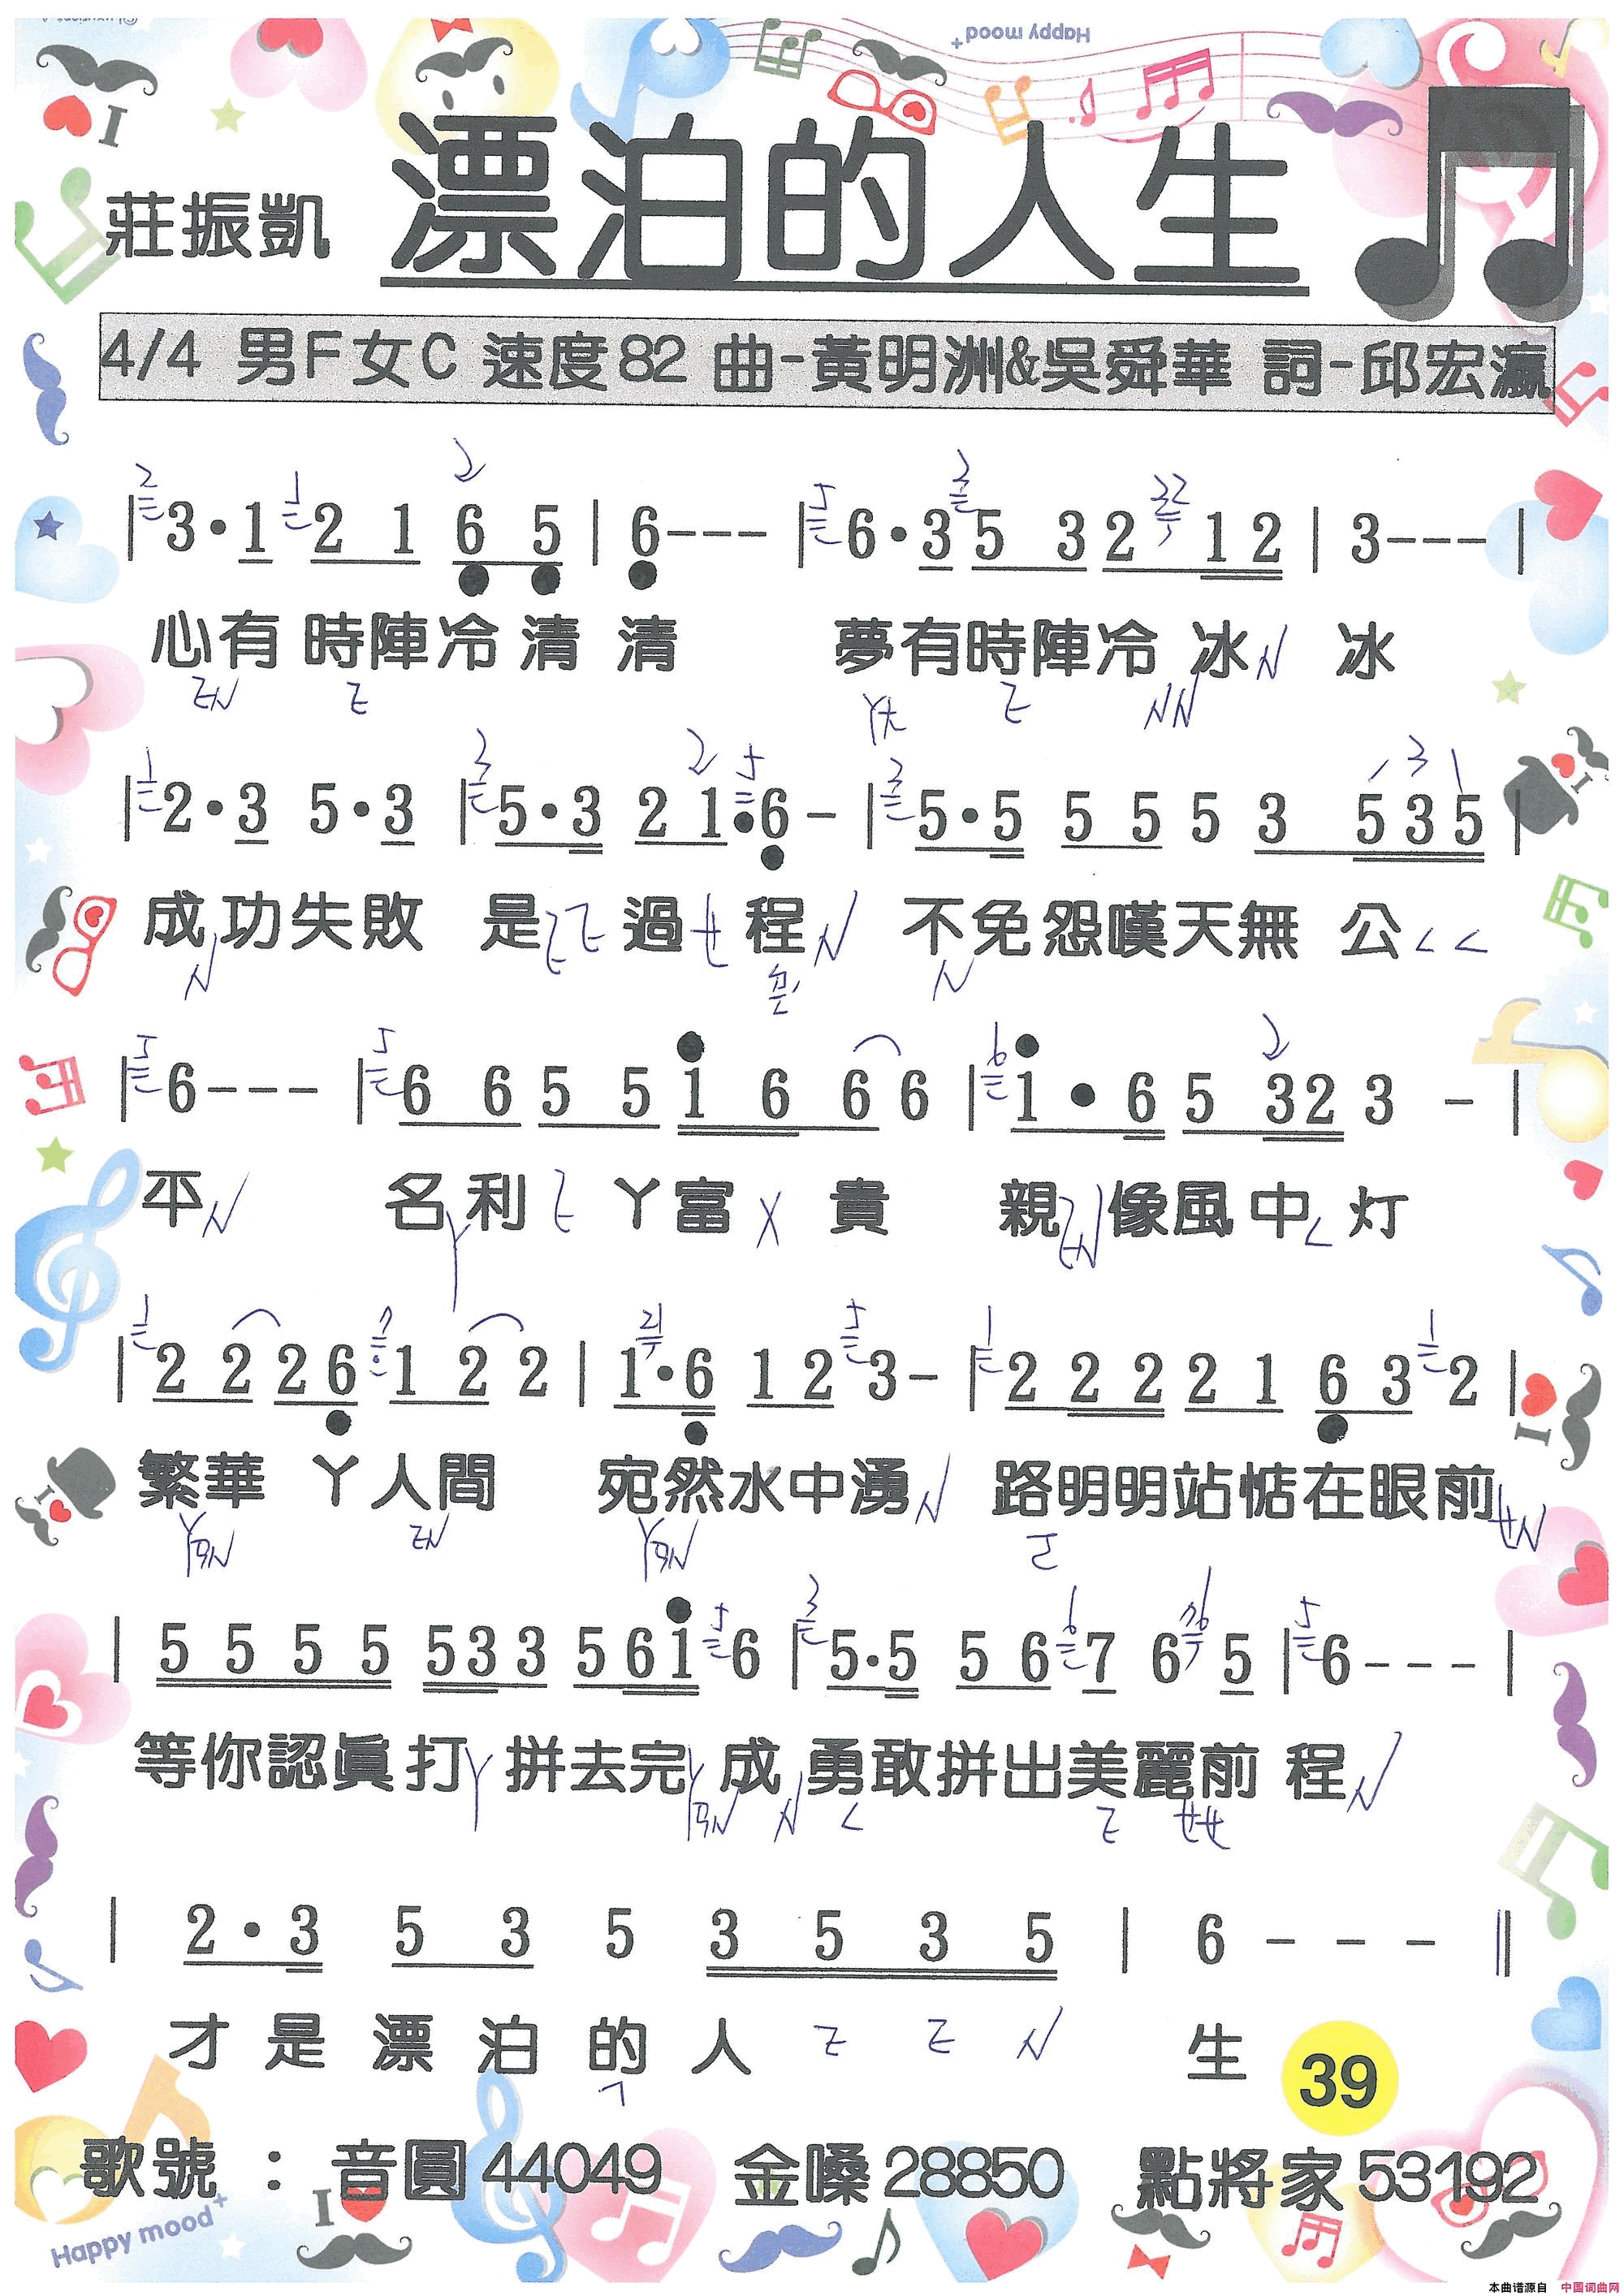 Happy mood+
莊振凱 漂泊的人生
4/4 男F女C 速度82 曲-黃明洲&吳舜華 詞-邱宏瀛
|3·1 2 1 6 5|6---|6·3 5 3 2 1 2|3---|
心有時陣冷清清 夢有時陣冷冰冰
|2·3 5·3|5·3 2 1·6-|5·5 5 5 5 3 5 3 5|
成功失敗 是過程 不免怨嘆天無公
|6---|6 6 5 5 1 6 6 6|1·6 5 3 2 3 -|
平 名利ㄚ富貴 親像風中灯
|2 2 2 6 1 2 2|1·6 1 2 3-|2 2 2 2 1 6 3 2|
繁華ㄚ人間 宛然水中湧 路明明站惦在眼前
|5 5 5 5 5 3 3 5 6 1 6|5·5 5 6 7 6 5|6---|
等你認眞打拼去完成 勇敢拼出美麗前程
|2·3 5 3 5 3 5 3 5|6---‖
才是漂泊的人 生
39
歌號：音圓44049 金嗓28850 點將家53192
I
Happy mood+
本曲谱源自 中国词曲网